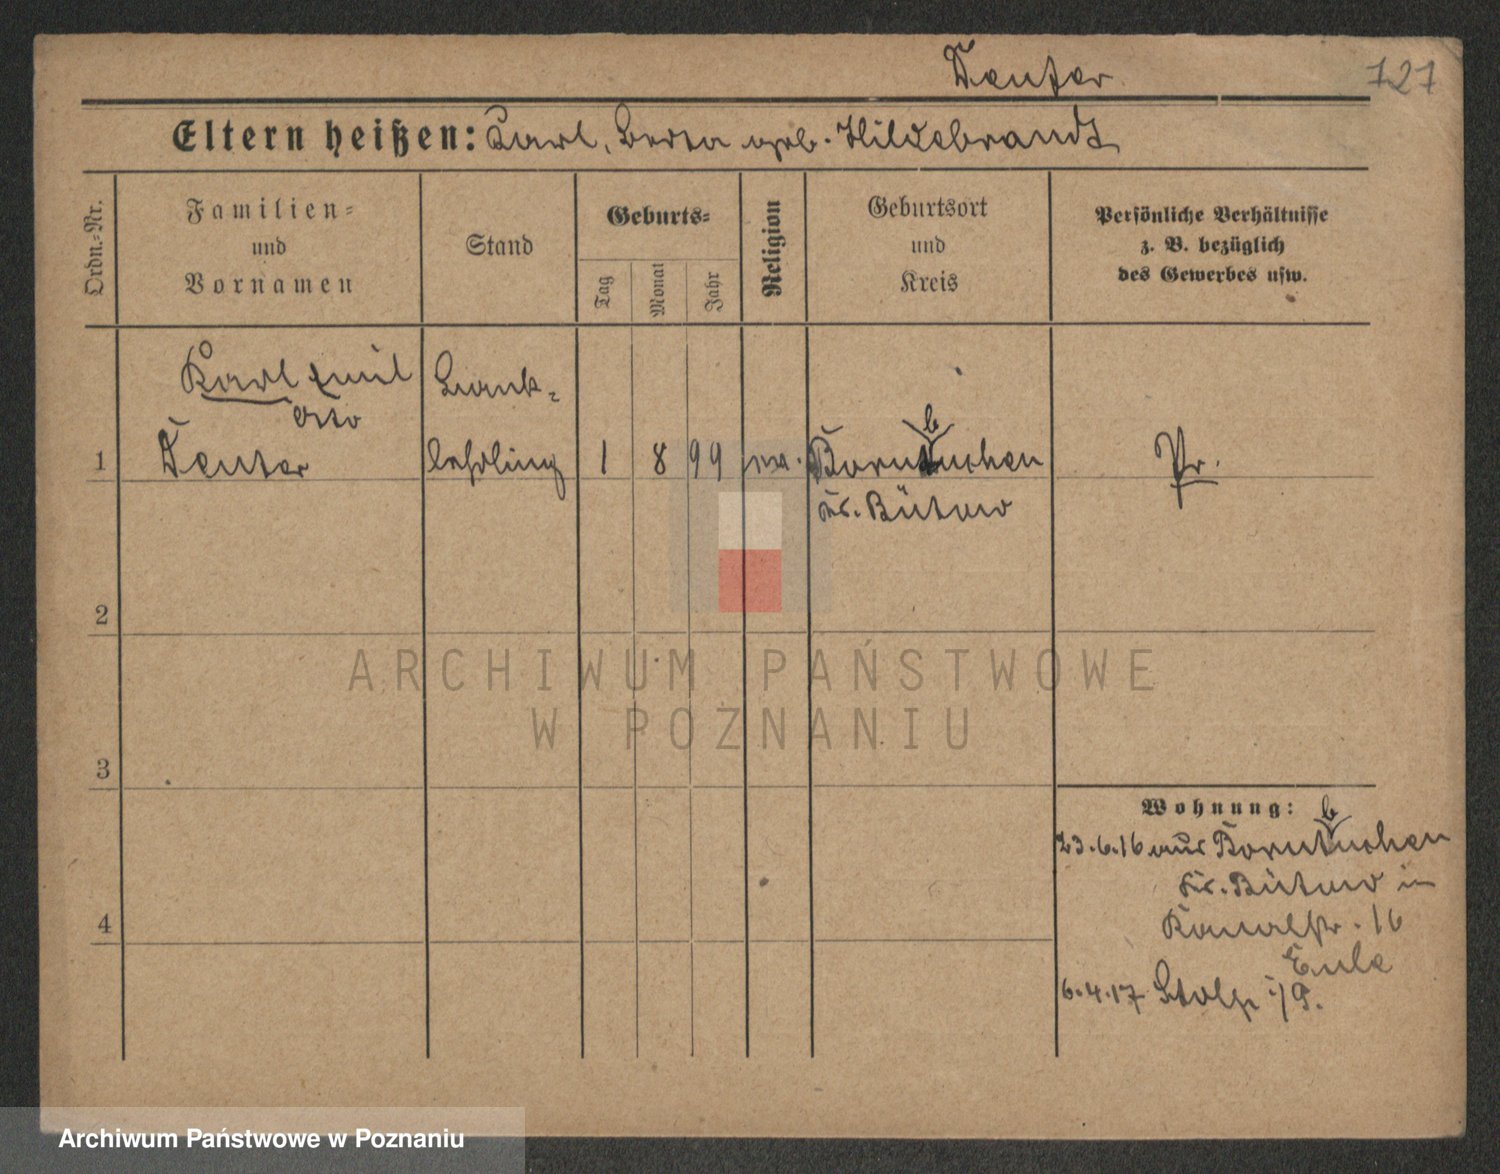 Tenter
121
Eltern heißen: Karl, Berta geb. Hildebrandt
Ordn.-Nr.
Familien-
und
Vornamen
Stand
Geburts-
Tag
Monat
Jahr
Religion
Geburtsort
und
Kreis
Persönliche Verhältnisse
z. B. bezüglich
des Gewerbes usw.
Karl Emil
Otto
Bank-
b
1 Tenter lehrling 1 8 99 Borntuchen Pr.
Kr. Bütow
2
3
4
Wohnung:
b
23.6.16 aus Borntuchen
Kr. Bütow in
Kanalstr. 16
6.4.17 Stolp i/P.
ARCHIWUM PAŃSTWOWE
W POZNANIU
Archiwum Państwowe w Poznaniu